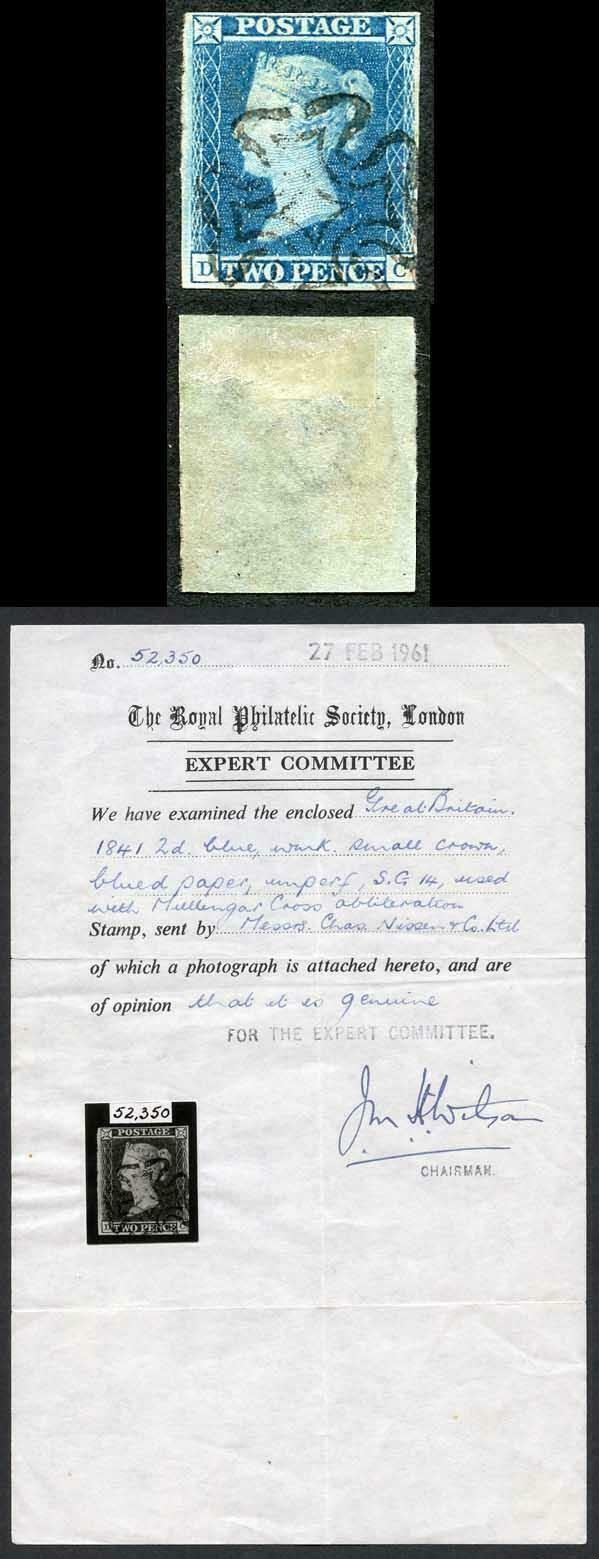 POSTAGE
D TWO PENCE C
No. 52,350 27 FEB 1961
The Royal Philatelic Society, London
EXPERT COMMITTEE
We have examined the enclosed Great Britain.
1841 2d. blue, wmk small crown,
blued paper, imperf, S.G 14, used
with Mullengar Cross obliteration
Stamp, sent by Messrs. Chas. Nissen & Co. Ltd
of which a photograph is attached hereto, and are
of opinion that it is genuine
FOR THE EXPERT COMMITTEE.
CHAIRMAN.
52,350
POSTAGE
D TWO PENCE C